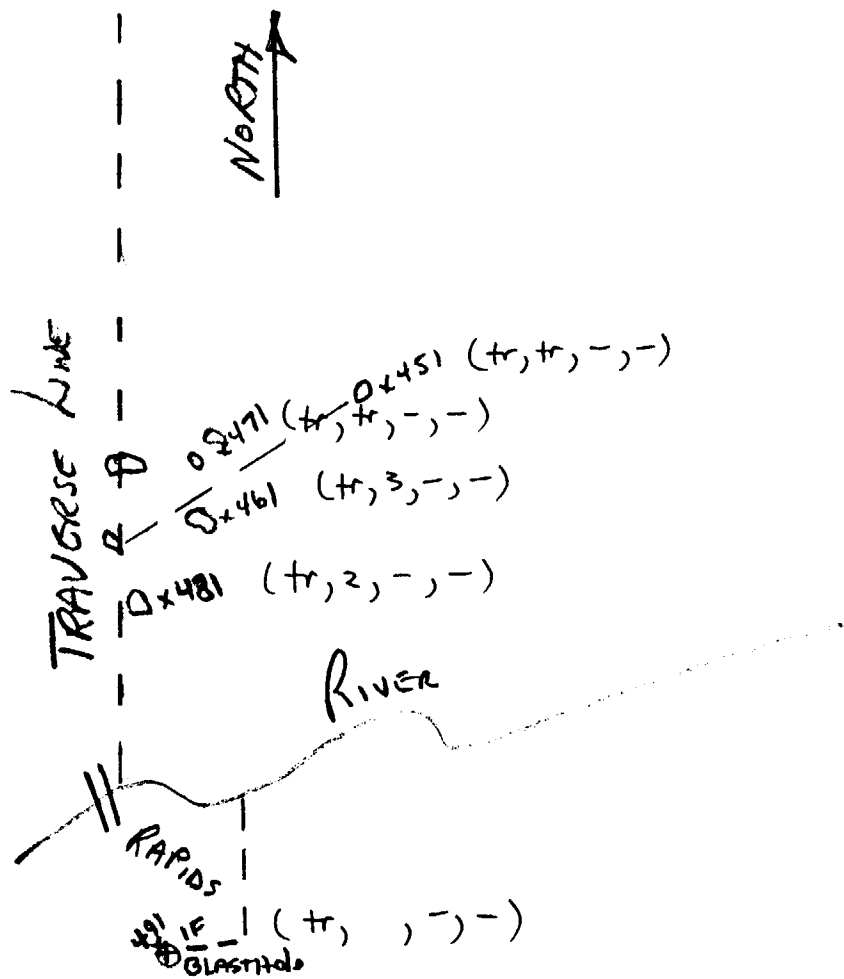 NORTH
TRAVERSE LINE
x451 (tr, tr, -, -)
x471 (tr, tr, -, -)
x461 (tr, 3, -, -)
x481 (tr, 2, -, -)
RIVER
RAPIDS
491 1F (tr, , -, -)
BLASTHole